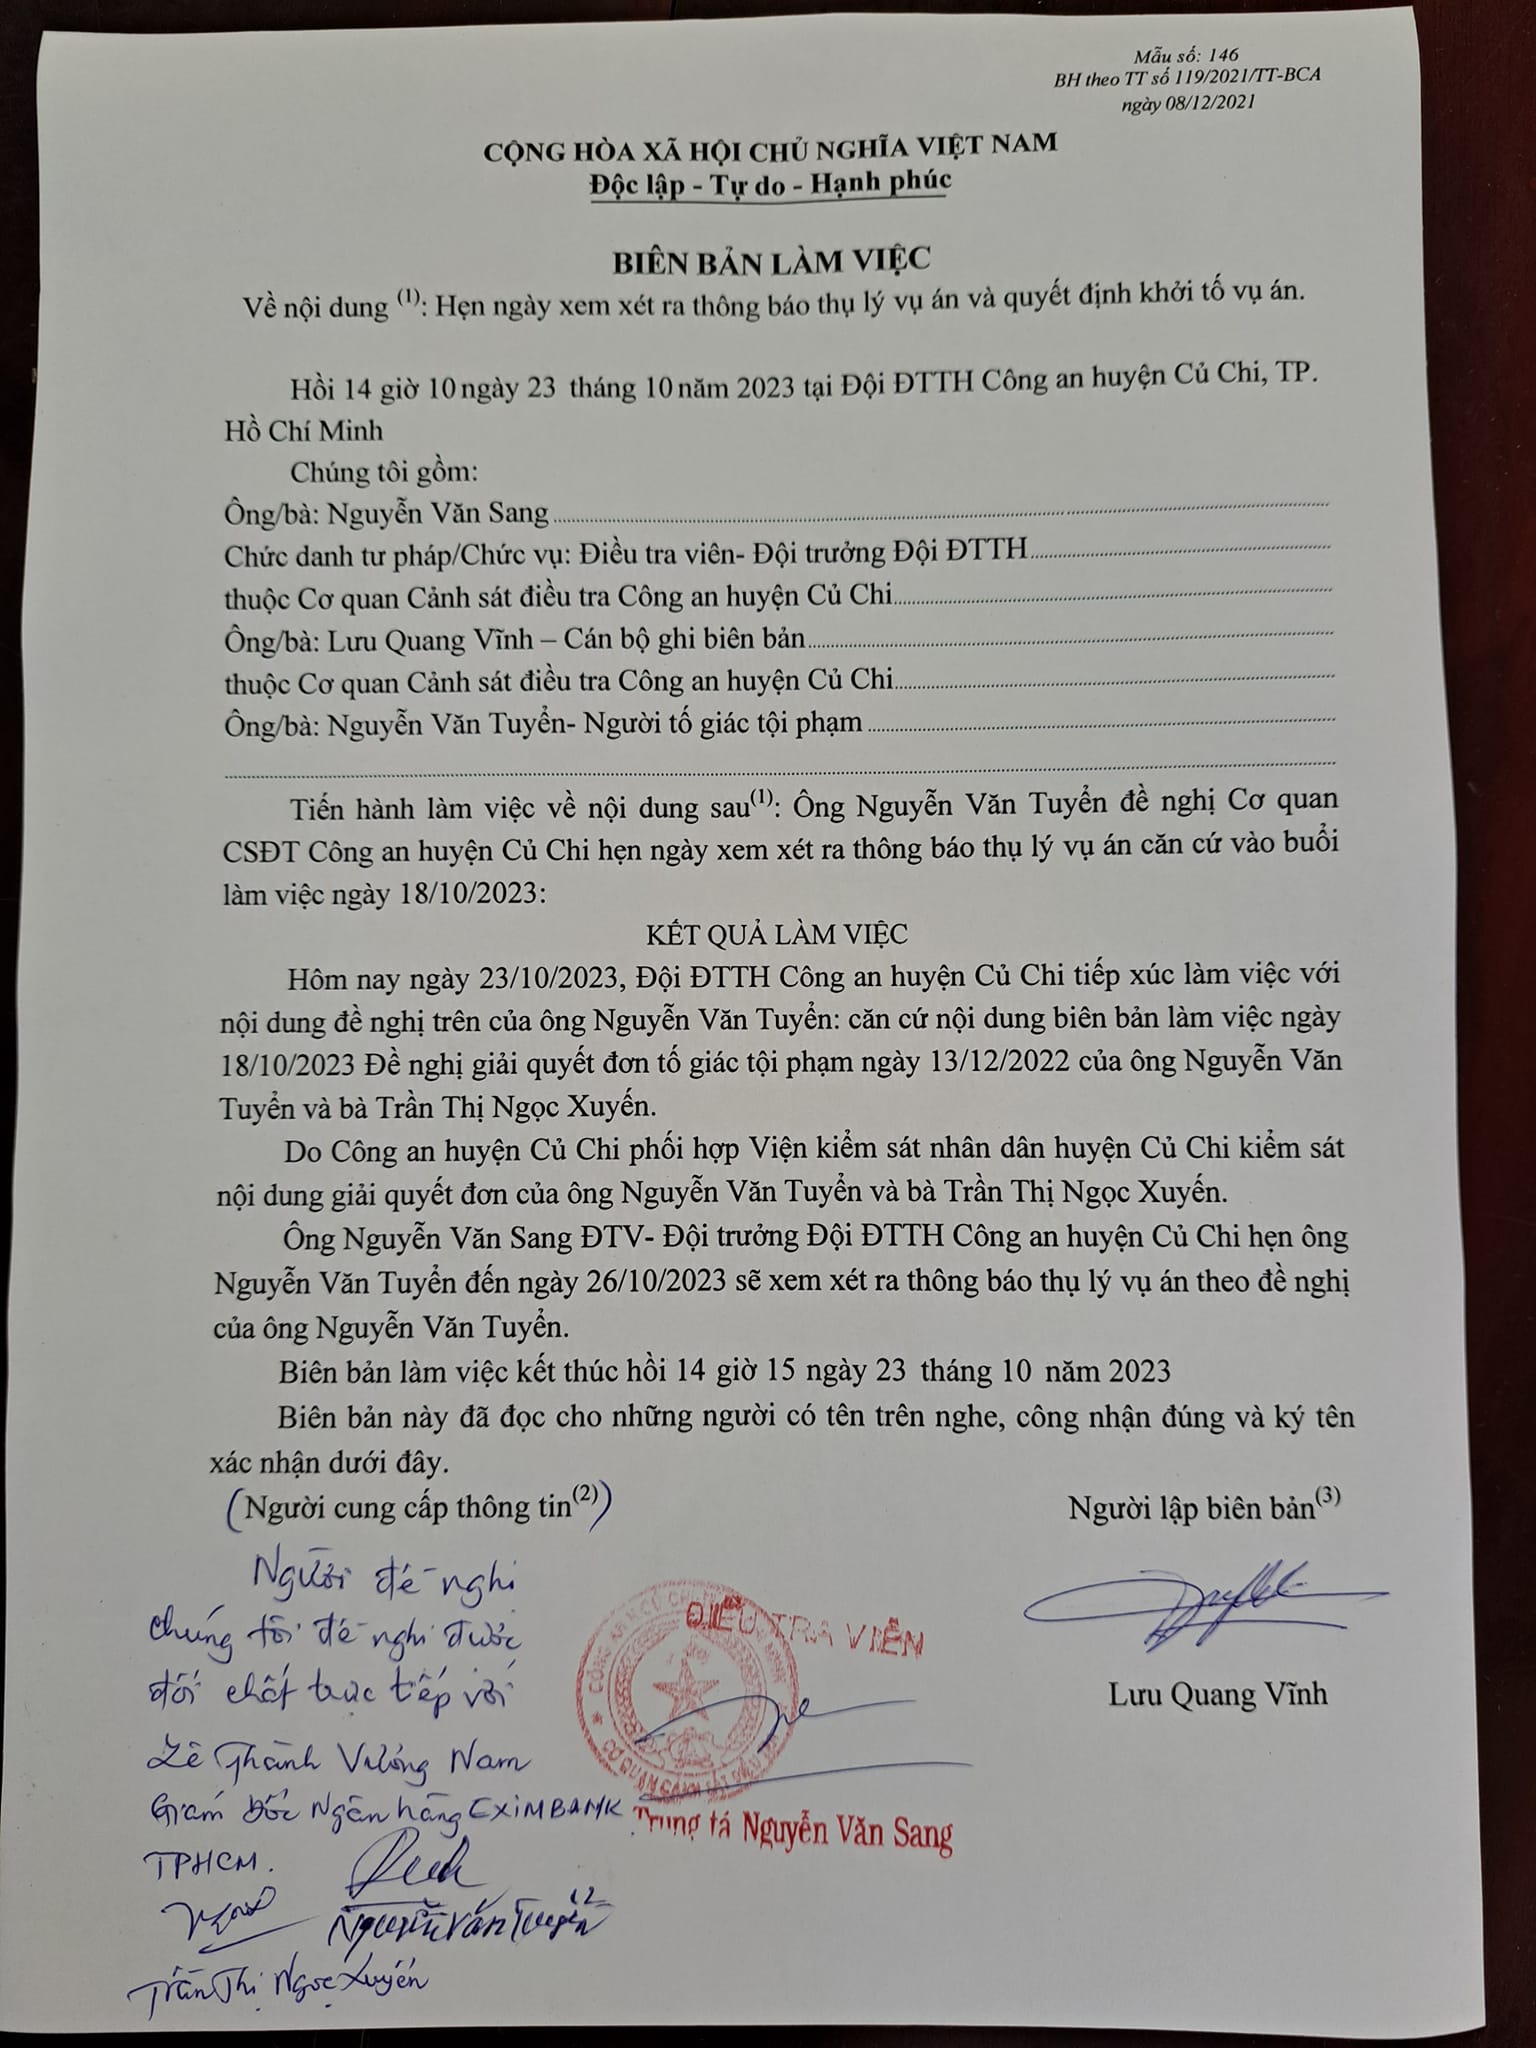 Mẫu số: 146
BH theo TT số 119/2021/TT-BCA
ngày 08/12/2021
CỘNG HÒA XÃ HỘI CHỦ NGHĨA VIỆT NAM
Độc lập - Tự do - Hạnh phúc
BIÊN BẢN LÀM VIỆC
Về nội dung (1): Hẹn ngày xem xét ra thông báo thụ lý vụ án và quyết định khởi tố vụ án.
Hồi 14 giờ 10 ngày 23 tháng 10 năm 2023 tại Đội ĐTTH Công an huyện Củ Chi, TP.
Hồ Chí Minh
Chúng tôi gồm:
Ông/bà: Nguyễn Văn Sang
Chức danh tư pháp/Chức vụ: Điều tra viên- Đội trưởng Đội ĐTTH
thuộc Cơ quan Cảnh sát điều tra Công an huyện Củ Chi
Ông/bà: Lưu Quang Vĩnh – Cán bộ ghi biên bản
thuộc Cơ quan Cảnh sát điều tra Công an huyện Củ Chi
Ông/bà: Nguyễn Văn Tuyển- Người tố giác tội phạm
Tiến hành làm việc về nội dung sau(1): Ông Nguyễn Văn Tuyển đề nghị Cơ quan
CSĐT Công an huyện Củ Chi hẹn ngày xem xét ra thông báo thụ lý vụ án căn cứ vào buổi
làm việc ngày 18/10/2023:
KẾT QUẢ LÀM VIỆC
Hôm nay ngày 23/10/2023, Đội ĐTTH Công an huyện Củ Chi tiếp xúc làm việc với
nội dung đề nghị trên của ông Nguyễn Văn Tuyển: căn cứ nội dung biên bản làm việc ngày
18/10/2023 Đề nghị giải quyết đơn tố giác tội phạm ngày 13/12/2022 của ông Nguyễn Văn
Tuyển và bà Trần Thị Ngọc Xuyến.
Do Công an huyện Củ Chi phối hợp Viện kiểm sát nhân dân huyện Củ Chi kiểm sát
nội dung giải quyết đơn của ông Nguyễn Văn Tuyển và bà Trần Thị Ngọc Xuyến.
Ông Nguyễn Văn Sang ĐTV- Đội trưởng Đội ĐTTH Công an huyện Củ Chi hẹn ông
Nguyễn Văn Tuyển đến ngày 26/10/2023 sẽ xem xét ra thông báo thụ lý vụ án theo đề nghị
của ông Nguyễn Văn Tuyển.
Biên bản làm việc kết thúc hồi 14 giờ 15 ngày 23 tháng 10 năm 2023
Biên bản này đã đọc cho những người có tên trên nghe, công nhận đúng và ký tên
xác nhận dưới đây.
(Người cung cấp thông tin(2))
Người lập biên bản(3)
Người đề nghị
chúng tôi đề nghị được
đối chất trực tiếp với
Lê Thành Vương Nam
Giám Đốc Ngân hàng EXIMBANK
TPHCM.
Nguyễn Văn Tuyển
Trần Thị Ngọc Xuyến
ĐIỀU TRA VIÊN
Trung tá Nguyễn Văn Sang
Lưu Quang Vĩnh